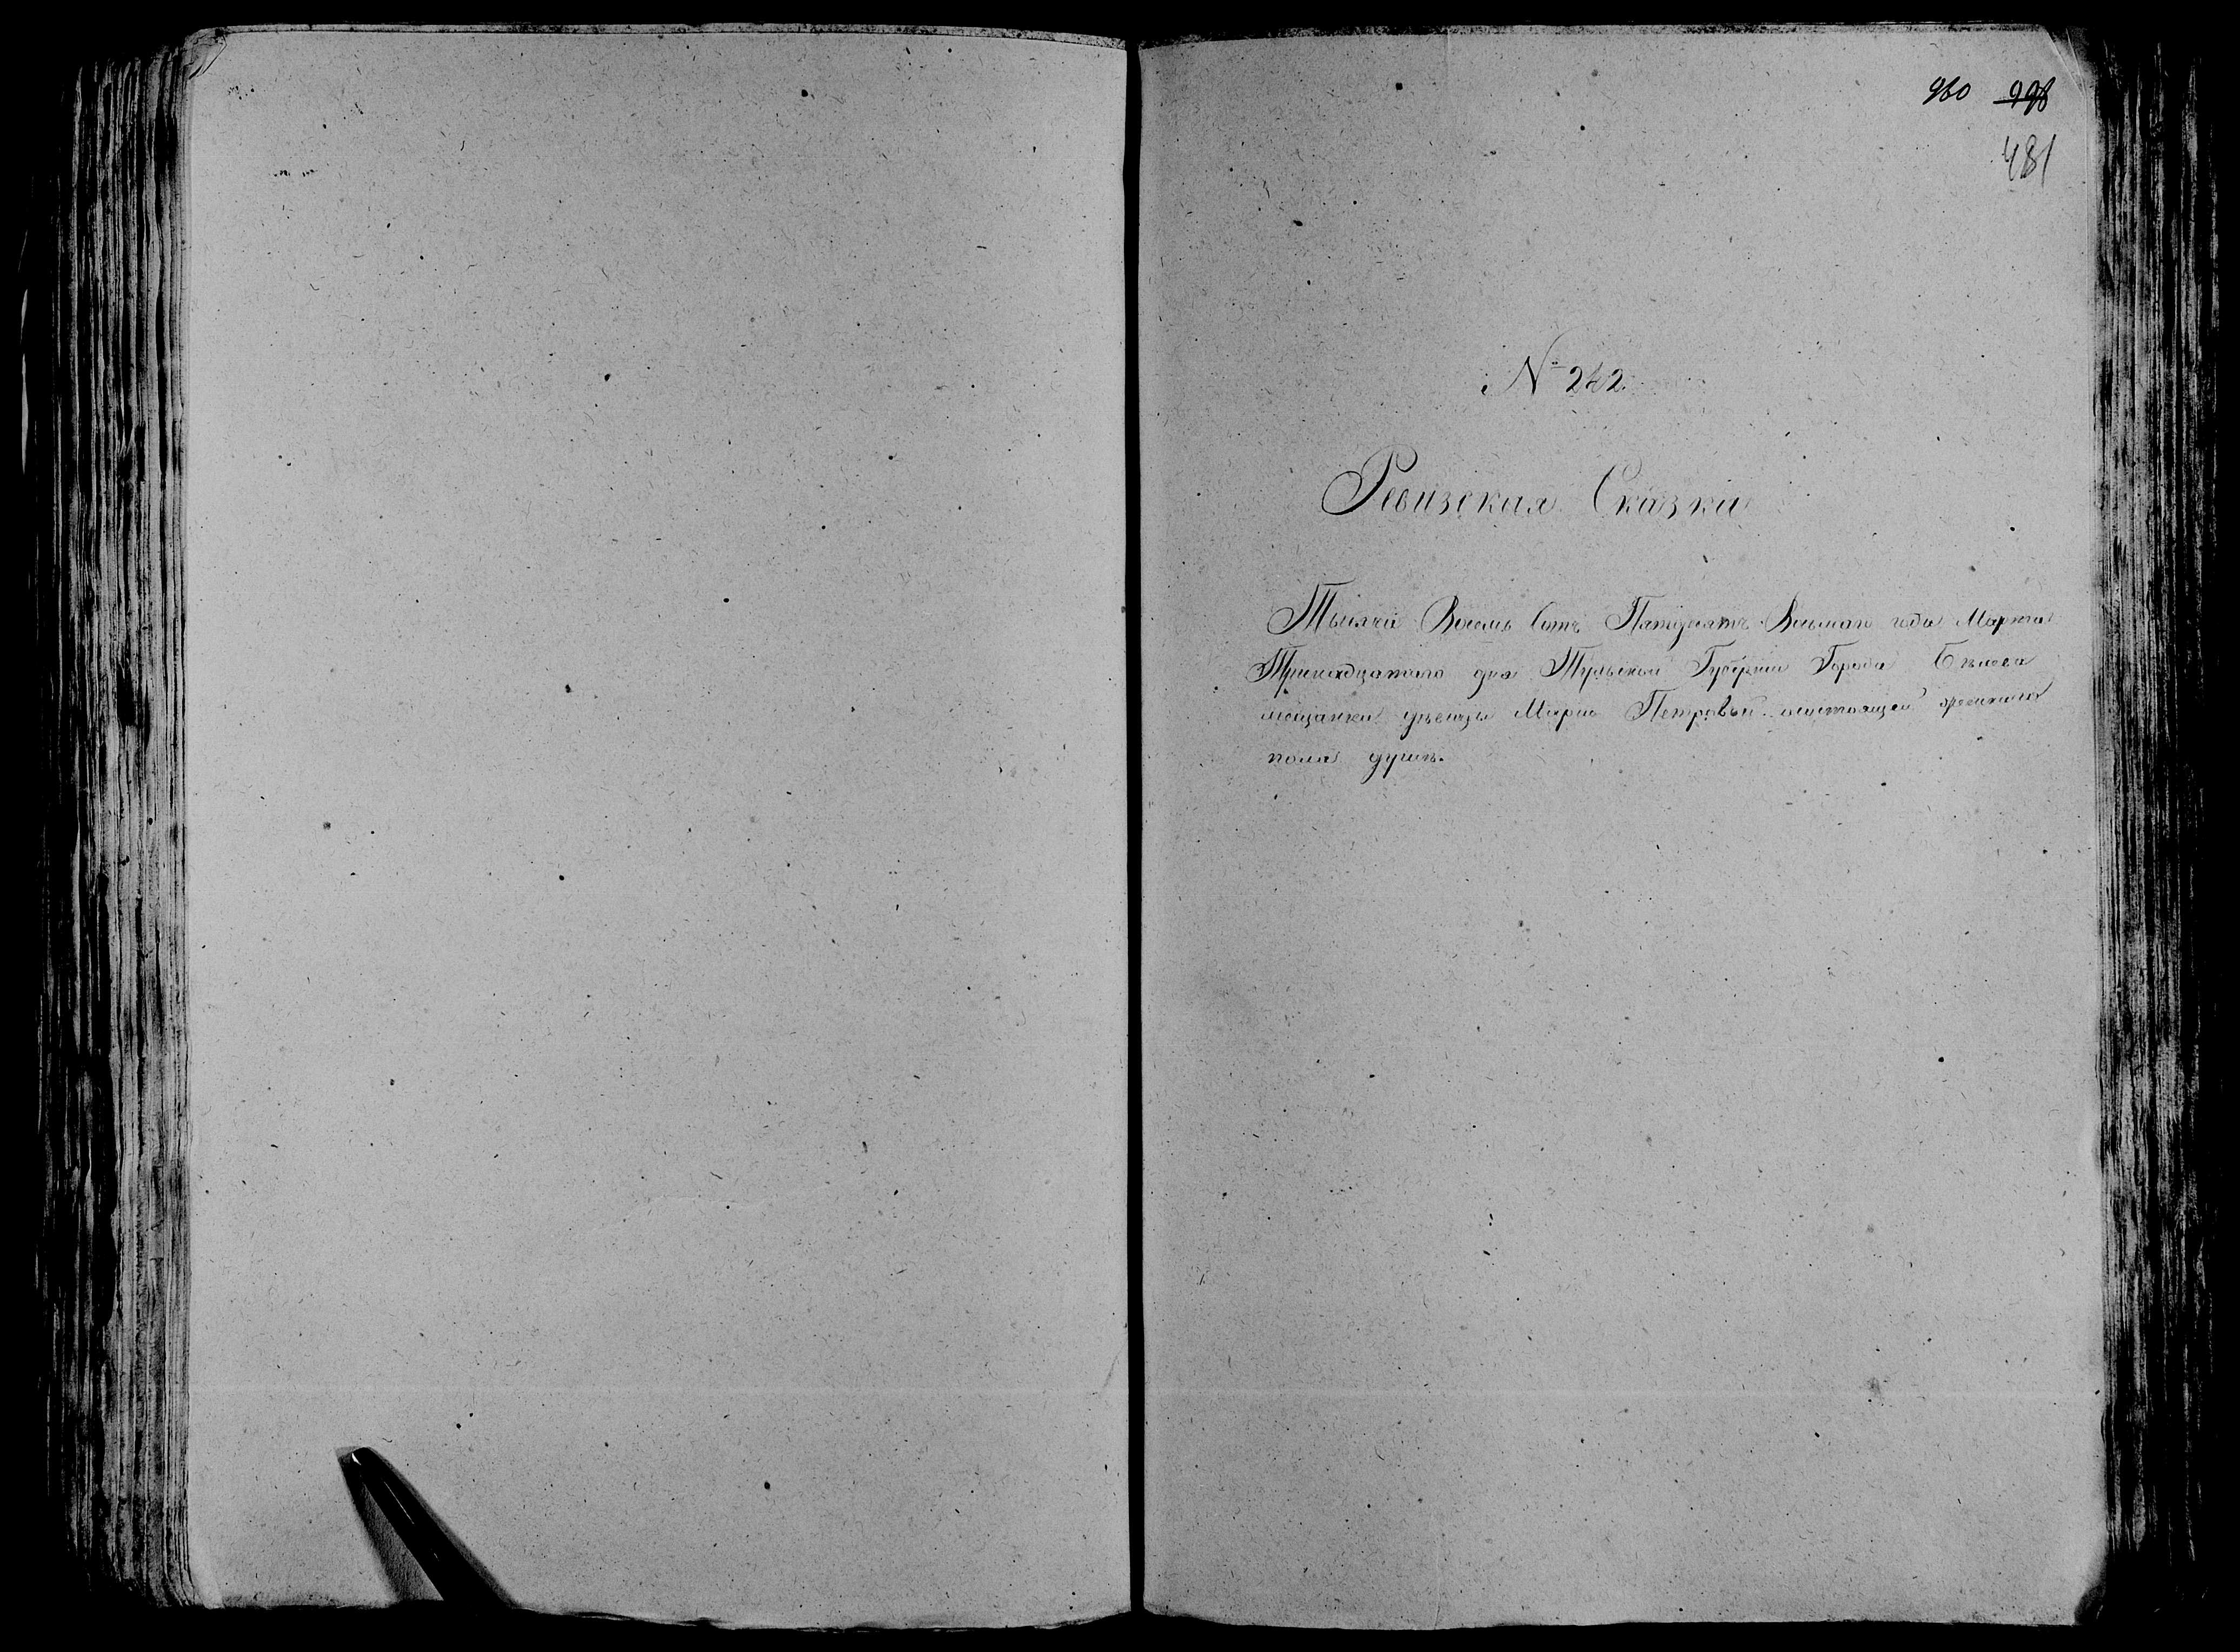 960 998
481
№ 242.
Ревизская Сказка
Тысяча Восемь Сотъ Пятдесятъ Восьмаго года Марта
Тринадцатаго дня Тульской Губерніи Города Бѣлева
мещанки дѣвицы Марьи Петровой состоящей женскаго
пола душѣ.